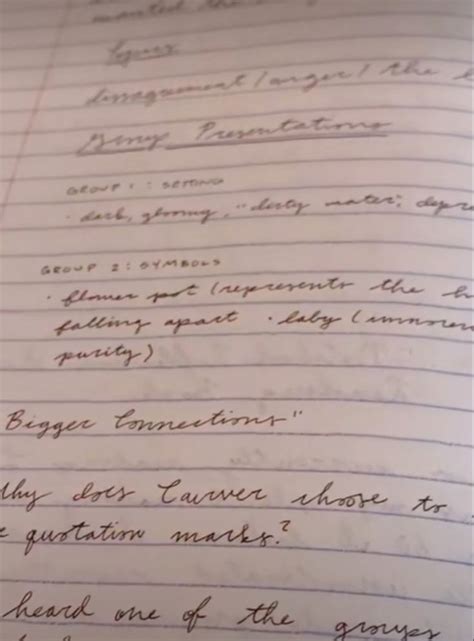 wanted the
Topics
disagreement / anger / the
Group Presentations
GROUP 1 : SETTING
· dark, gloomy, "dirty water", depre
GROUP 2 : SYMBOLS
· flower pot (represents the
falling apart · baby (innocen
purity)
Bigger Connections"
Why does Carver choose to
quotation marks?
heard one of the groups